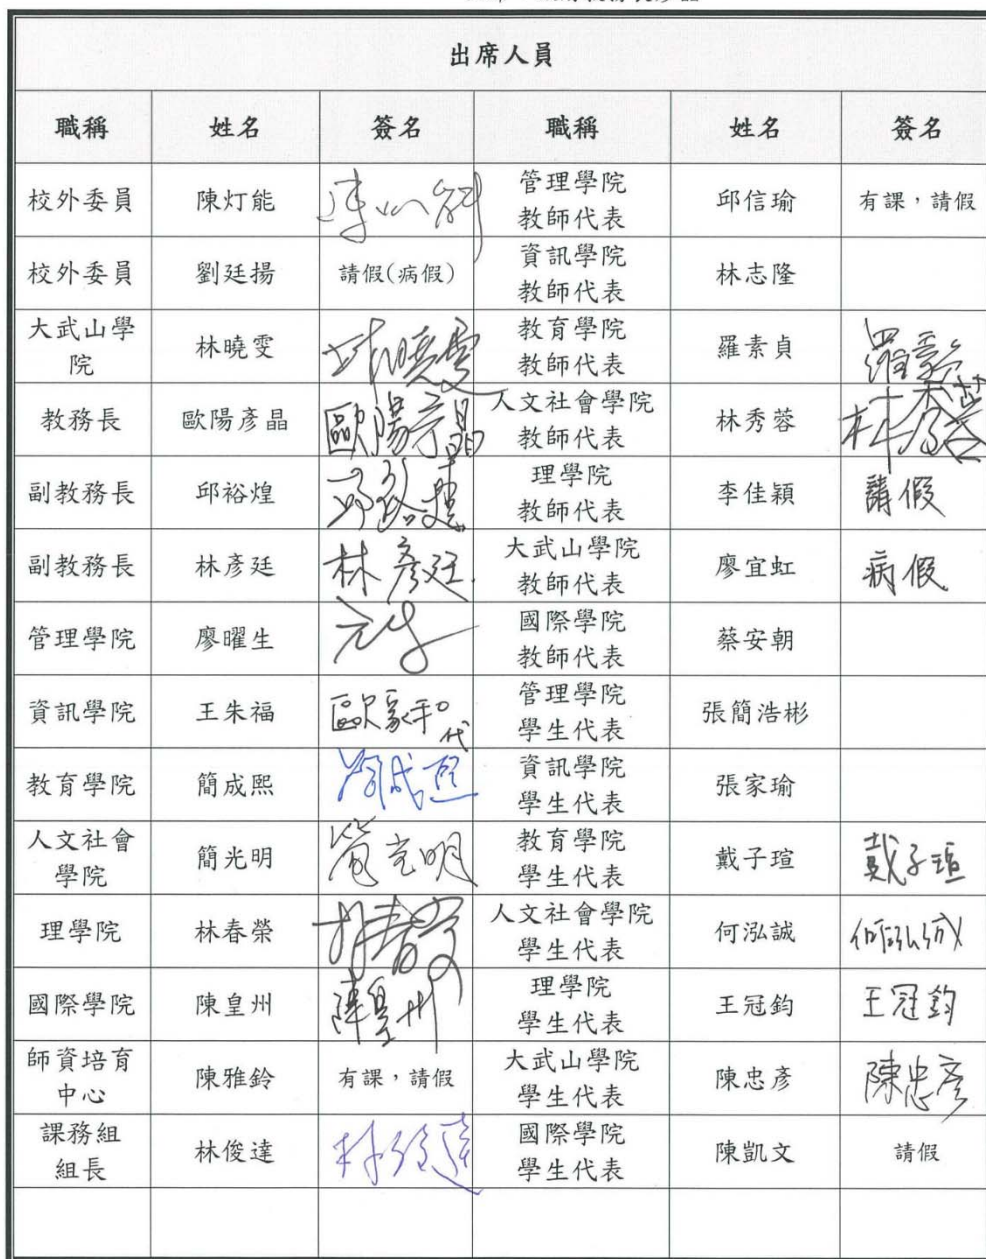 出席人員
職稱 姓名 簽名 職稱 姓名 簽名
校外委員 陳灯能 管理學院 教師代表 邱信瑜 有課，請假
校外委員 劉廷揚 請假(病假) 資訊學院 教師代表 林志隆
大武山學院 林曉雯 林曉雯 教育學院 教師代表 羅素貞 羅素貞
教務長 歐陽彥晶 歐陽彥晶 人文社會學院 教師代表 林秀蓉 林秀蓉
副教務長 邱裕煌 理學院 教師代表 李佳穎 請假
副教務長 林彥廷 林彥廷 大武山學院 教師代表 廖宜虹 病假
管理學院 廖曜生 國際學院 教師代表 蔡安朝
資訊學院 王朱福 歐家和代 管理學院 學生代表 張簡浩彬
教育學院 簡成熙 簡成熙 資訊學院 學生代表 張家瑜
人文社會學院 簡光明 簡光明 教育學院 學生代表 戴子瑄 戴子瑄
理學院 林春榮 林春榮 人文社會學院 學生代表 何泓誠 何泓誠
國際學院 陳皇州 陳皇州 理學院 學生代表 王冠鈞 王冠鈞
師資培育中心 陳雅鈴 有課，請假 大武山學院 學生代表 陳忠彥 陳忠彥
課務組組長 林俊達 林俊達 國際學院 學生代表 陳凱文 請假